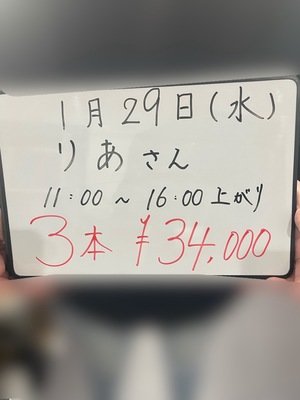 1月29日(水)
りあさん
11:00～16:00上がり
3本 ¥34,000